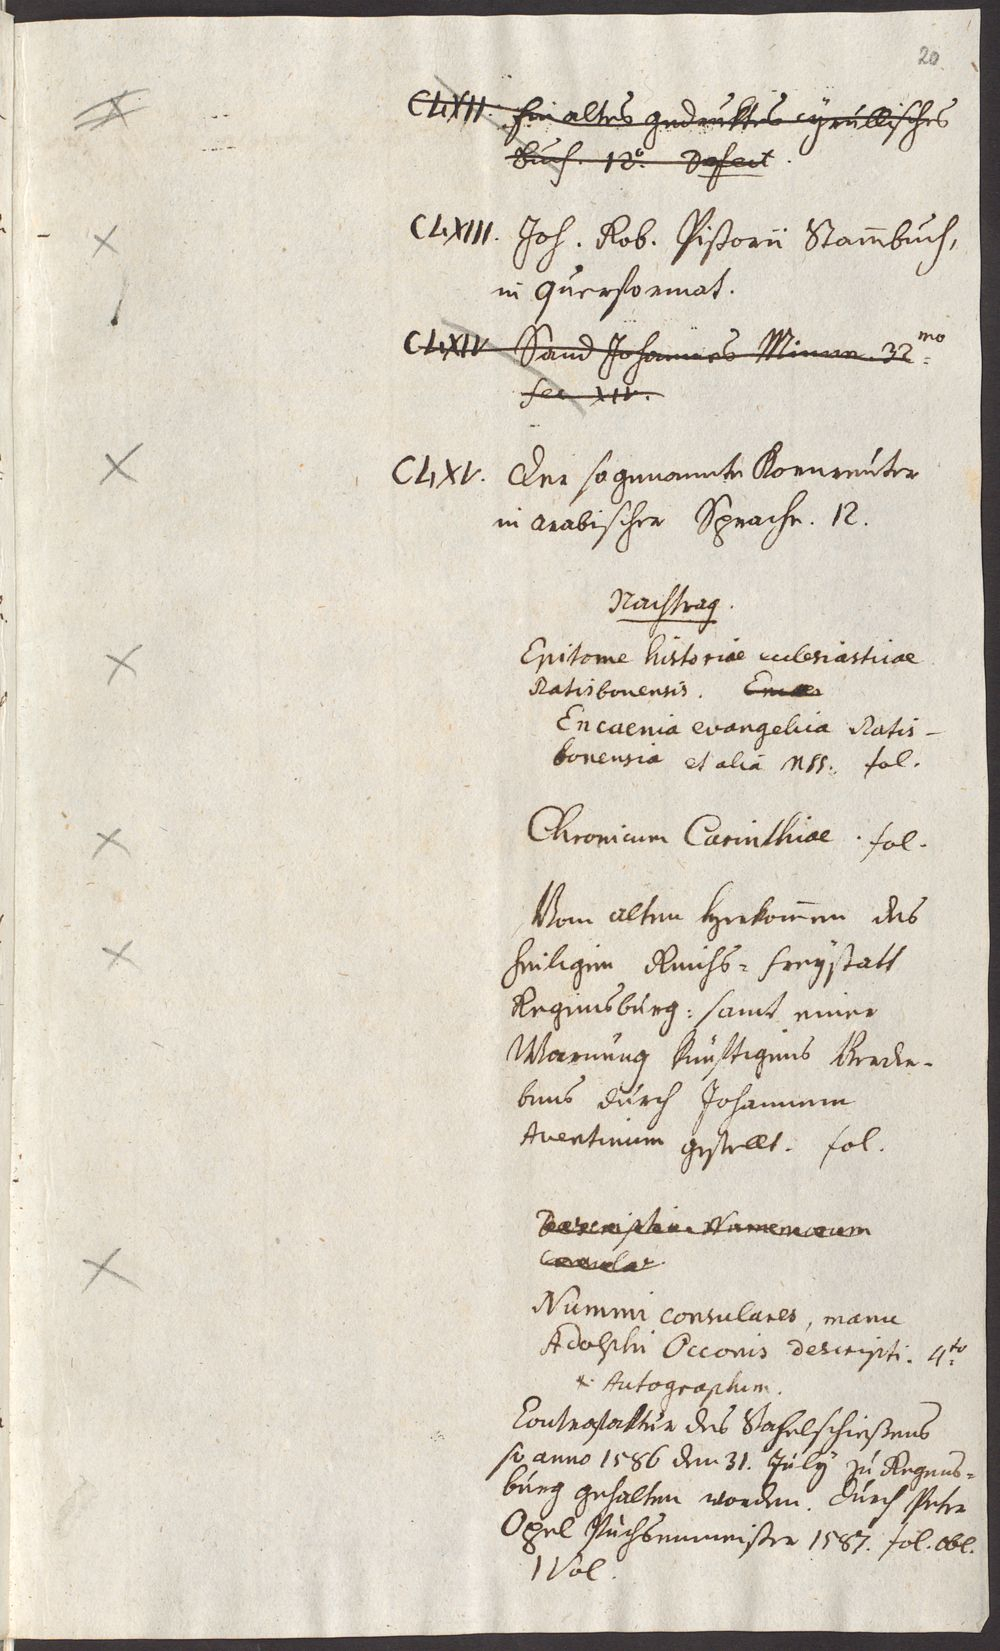 20
CLXII. Ein altes gedruktes cyrullisches
Buch. 12° Defect.
CLXIII. Joh. Rob. Pistorii Stam̄buch,
in Querformat.
CLXIV Sand Johannes Minne. 32mo
sec XIV.
CLXV. Der sogenannte Kornreuter
in arabischer Sprache. 12.
Nachtrag.
Epitome historiae ecclesiasticae
Ratisbonensis.
Encaenia evangelica Ratis-
bonensia et alia MSS. fol.
Chronicum Carinthiae. fol.
Vom alten herkom̄en des
heiligen Reichs-freystatt
Regensburg: samt einer
Warnung künftigens
durch Johannem
Aventinum gestellt. fol.
Descriptio Nummorum
Consular
Nummi consulares, manu
Adolphi Occonis descripti. 4to
* Autographum.
Contrafaktur des Stahelschießens
so anno 1586 den 31. July zu Regens-
burg gehalten worden. durch Peter
Opel Püchsenmeister 1587. fol. obl.
1 Vol.